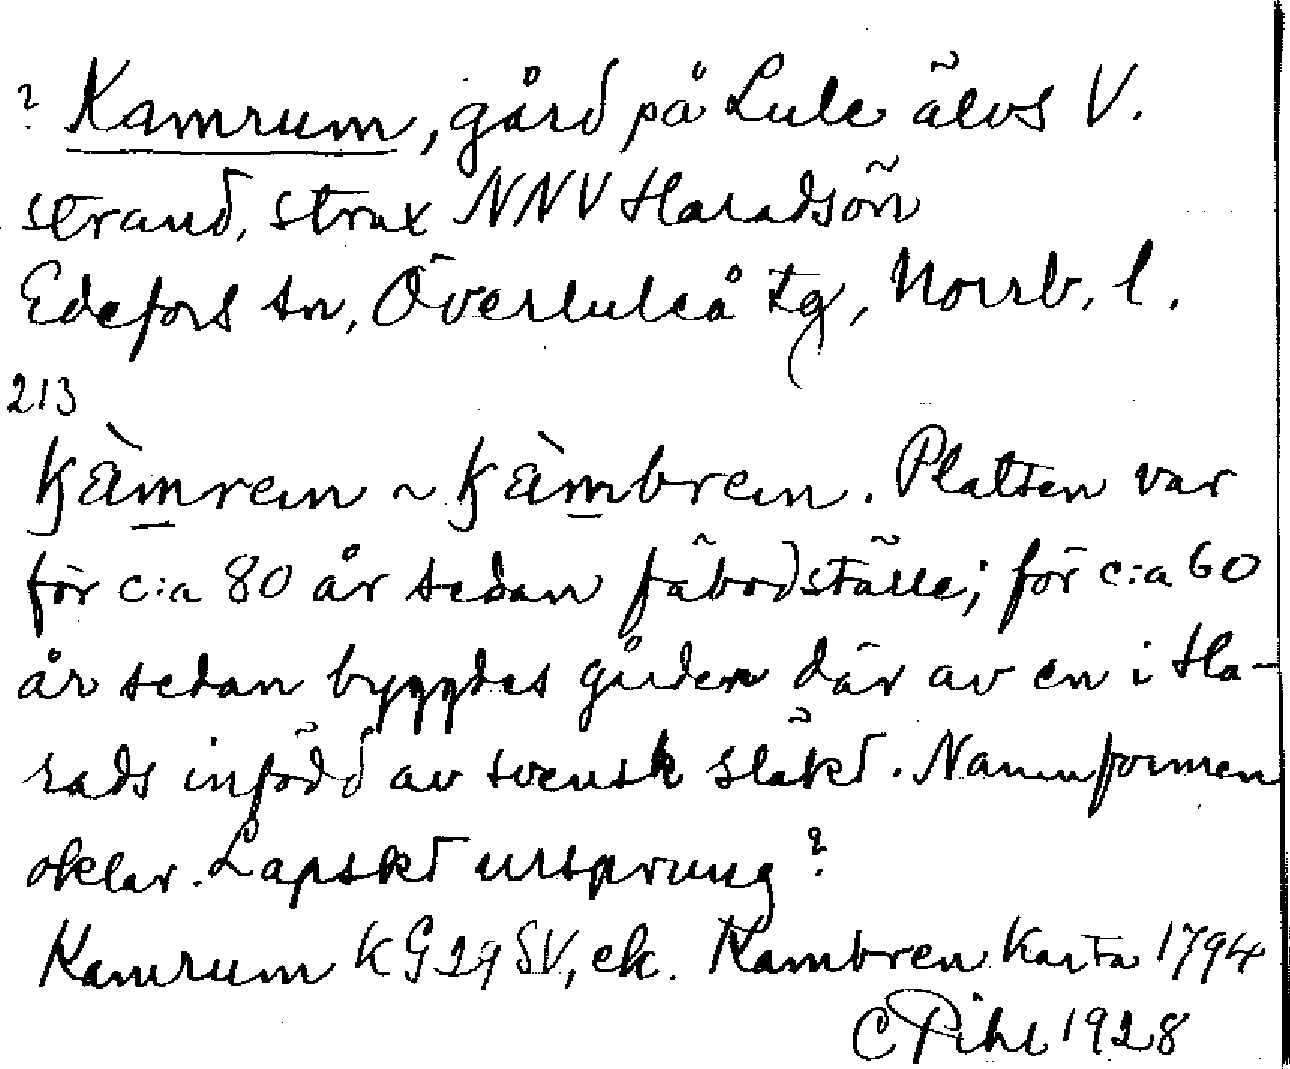 ? Kamrum, gård på Lule älvs V.
strand, strax NNV Haradsön
Edefors sn, Överluleå tg, Norrb. l.
213
Kàmrem ~ Kàmbrem. Platsen var
för c:a 80 år sedan fäbodställe; för c:a 60
år sedan byggdes gården där av en i Ha-
rads infödd av svensk släkt. Namnformen
oklar. Lapskt ursprung?
Kamrum KG 29 SV, ek. Kambren Karta 1794
C Pihl 1928